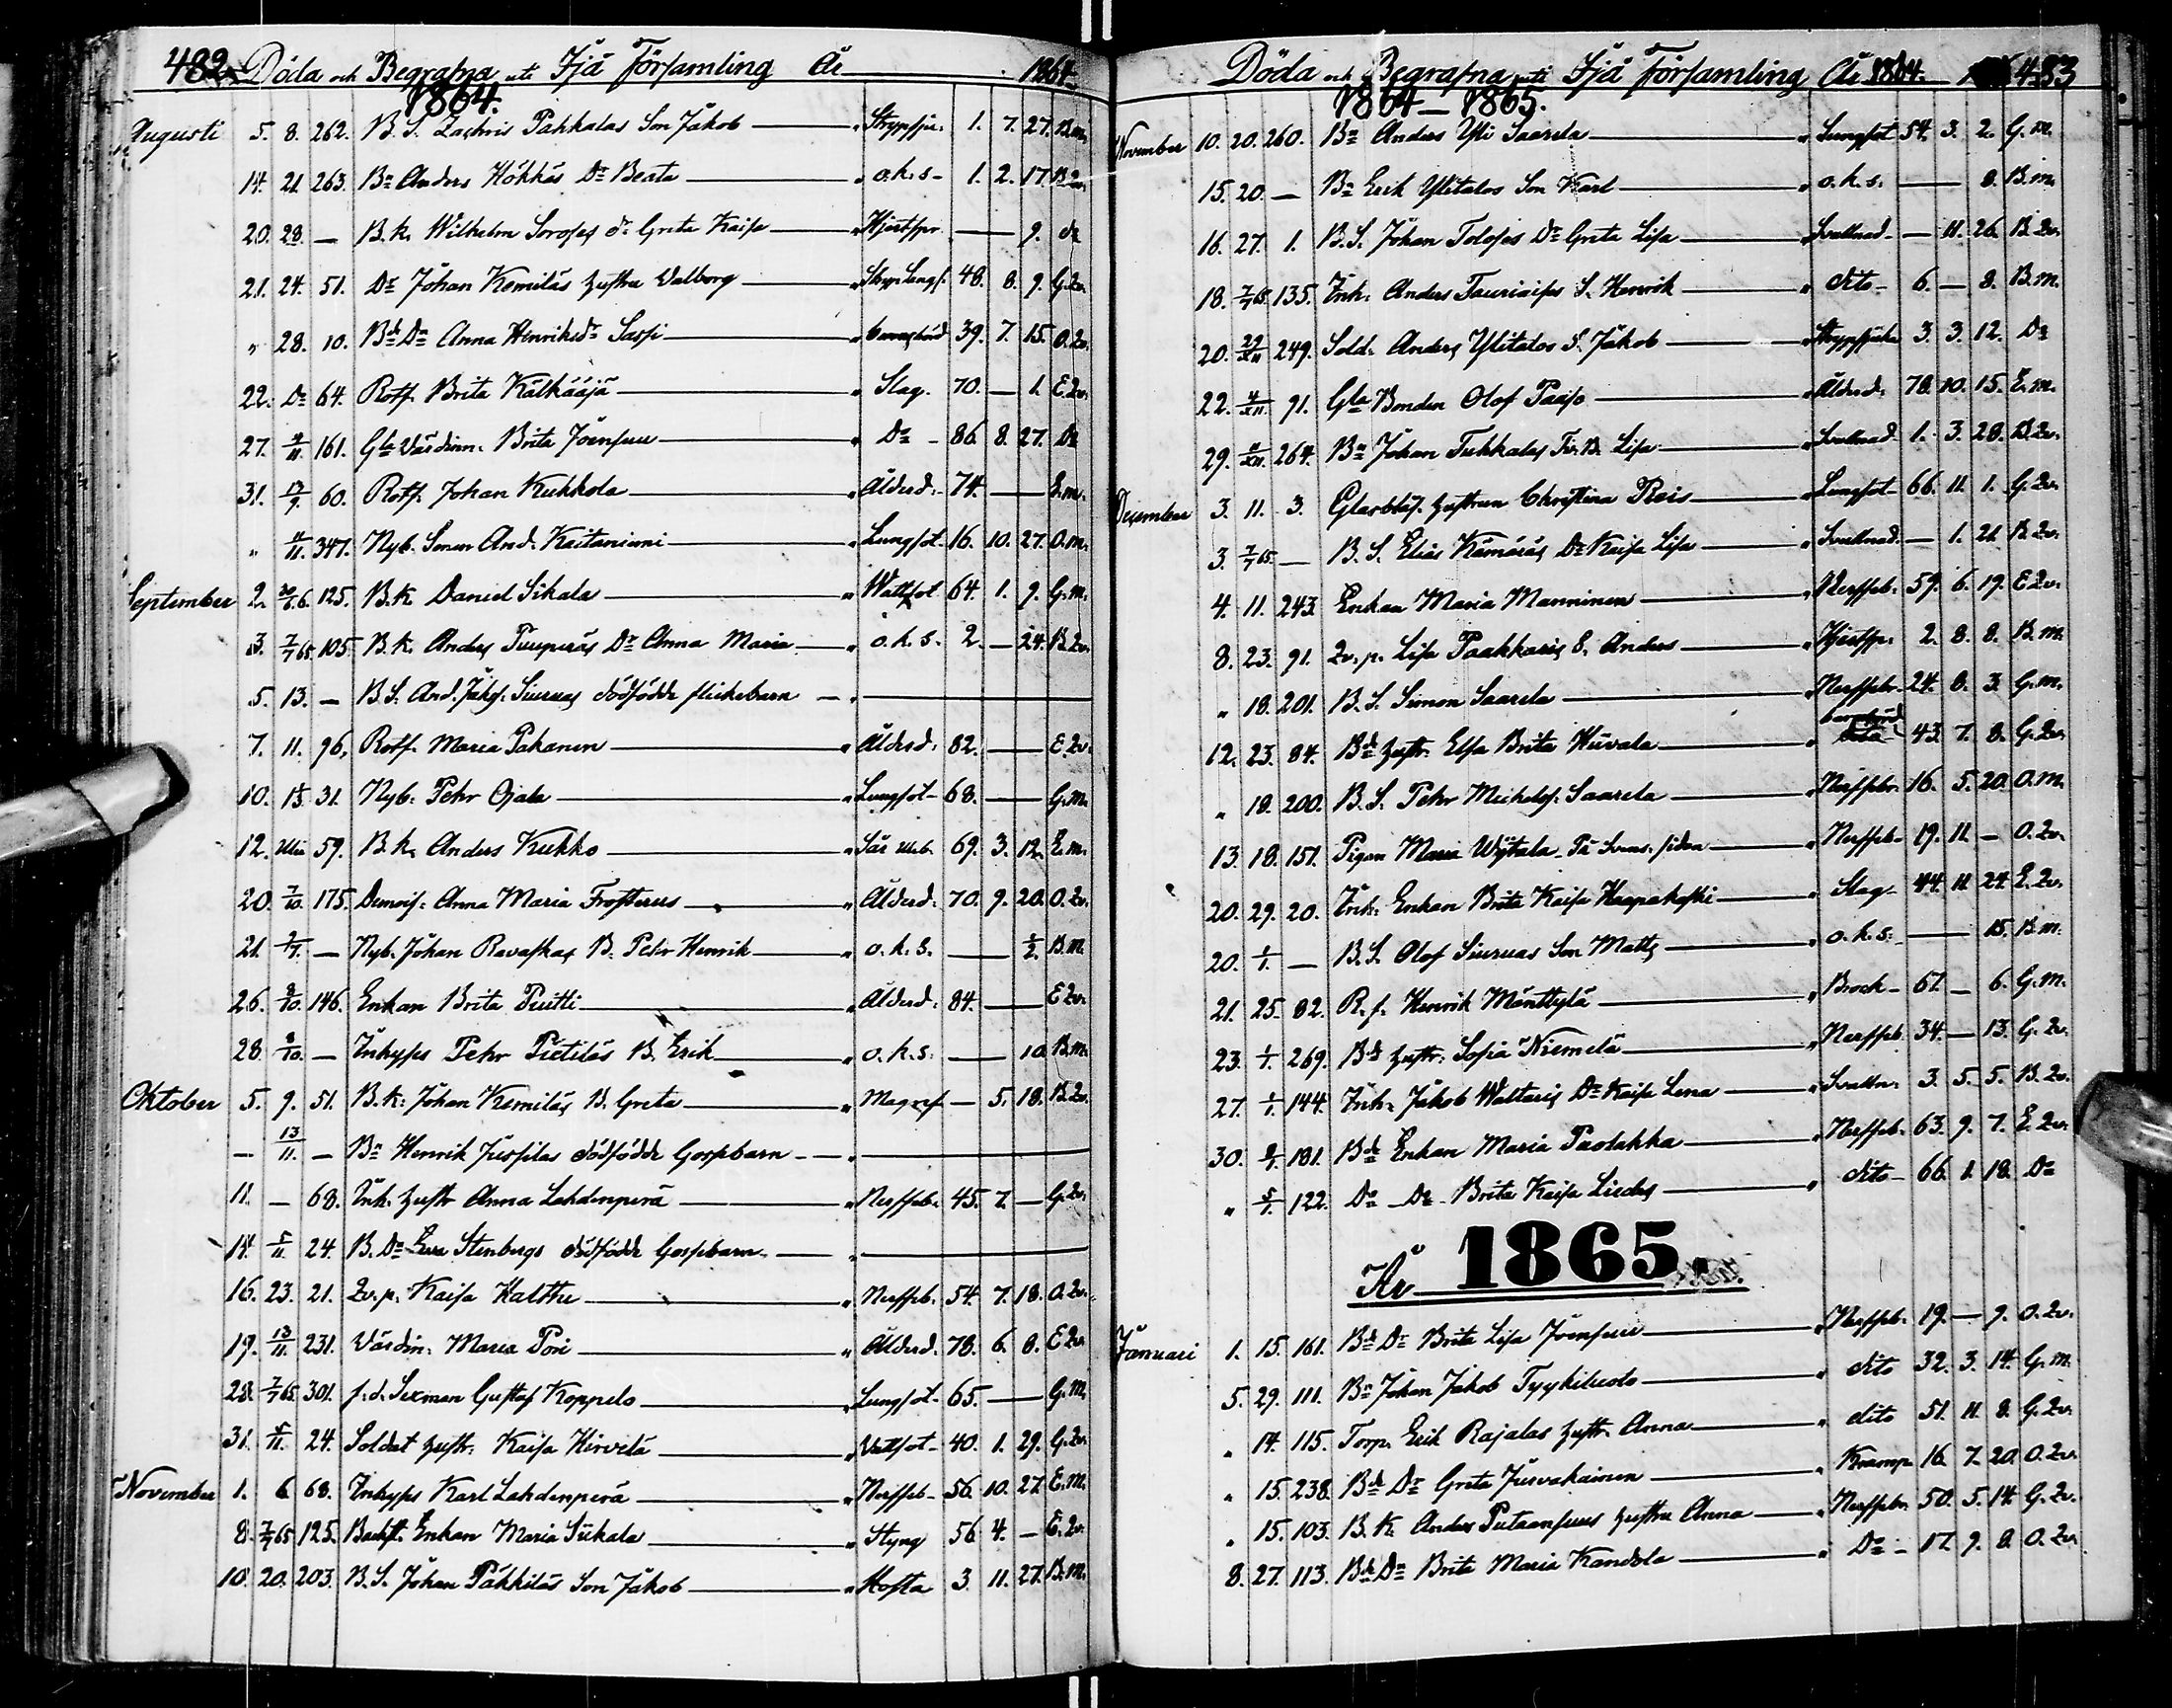 482. Döda och Begrafna uti Ijå Församling År 1864.
1864.
Augusti 5. 8. 262. B. S. Zachris Pahkalas Son Jakob — " Strypsju. 1. 7. 27. B.m.
14. 21. 263. Bn Anders Hökkäs Dr Beata — " o.k.s. 1. 2. 17. B.Qv.
20. 28. — B.k. Wilhelm Sorosés dr Greta Kaisa — " Hjertspr. — 9. do
21. 24. 51. Do Johan Kemiläs hustru Walborg — " 48. 8. 9. G.Qv.
" 28. 10. Bde Dr Anna Henriksdr Sassi — " barnsbörd 39. 7. 15. O.Qv.
22. Do 64. Rotf. Brita Kälkääjä — " Slag. 70. — 1. E.Qv.
27. 4/11. 161. Gla Värdinn. Brita Joensuu — " Do 86. 8. 27. Do
31. 13/9. 60. Rotf. Johan Kukkola — " Ålderd. 74. — E.m.
" 4/11. 347. Nyb. Sonen And. Kaitaniemi — " Lungsot. 16. 10. 27. O.m.
September 2. 125. B.k. Daniel Sikala — " Wattsot. 64. 1. 9. G.m.
3. 7/1 65. 105. B.k. Anders Tuuperäs Dr Anna Maria — " o.k.s. 2. — 24. B.Qv.
5. 13. — B.S. And. Jakos. Siuruas dödfödde flickebarn — "
7. 11. 96. Rotf. Maria Pakanen — " Ålderd. 82. — E.Qv.
10. 15. 31. Nyb. Pehr Ojala — " Lungsot 68. — G.m.
12. 59. B.k. Anders Kukko — " 69. 3. 12. E.m.
20. 7/10. 175. Demois. Anna Maria Frosterus — " Ålderd. 70. 9. 20. O.Qv.
21. — Nyb. Johan Ravaskas B. Pehr Henrik — " o.k.s. — 1/2. B.m.
26. 8/10. 146. Enkan Brita Puitti — " Ålderd. 84. — E.Qv.
28. 8/10. — Inhyses Pehr Pietiläs B. Erik — " o.k.s. — 10. B.m.
Oktober 5. 9. 51. B.k. Johan Kemiläs B. Greta — " Magref. — 5. 18. B.Qv.
— 13/11. — Bn Henrik Jussilas dödfödde Gossebarn — "
11. — 68. Inh. hustr Anna Lahdenperä — " Nerffeb. 45. 7. — G.Qv.
14. 5/11. 24. B. Dr Eva Stenbergs dödfödde Gossebarn — "
16. 23. 21. Qv.p. Kaisa Halttu — " Nerffeb. 54. 7. 18. O.Qv.
19. 13/11. 231. Värdin. Maria Pori — " Ålderd. 78. 6. 8. E.Qv.
28. 7/1 65. 301. f.d. Sexman Gustaf Koppelo — " Lungsot. 65. — G.M.
31. 5/11. 24. Soldat hustr. Kaisa Hirvelä — " Vattsot 40. 1. 29. G.Qv.
November 1. 6. 68. Inhyses Karl Lahdenperä — " Nerffeb. 56. 10. 27. E.M.
8. 7/1 65. 125. Backst. Enkan Maria Siikala — " Styng 56. 4. — E.Qv.
10. 20. 203. B.S. Johan Päkkiläs Son Jakob — " Hosta 3. 11. 27. B.m.
Döda och Begrafna uti Ijå Församling År 1864. 483
1864 – 1865.
November 10. 20. 260. Bn Anders Yli Saarela — " Lungsot 54. 3. 2. G.m.
15. 20. — Bn Erik Ylitalos Son Karl — " o.k.s. — 8. B.m.
16. 27. 1. B.S. Johan Toloses Dr Greta Lisa — " Svullnad — 11. 26. B.Qv.
18. 7/1 65. 135. Inh. Anders Tauriaises S. Henrik — " dito 6. — 8. B.m.
20. 27/XII 249. Sold. Anders Ylitalos S. Jakob — " Strypsjuka 3. 3. 12. Do
22. 4/XII 91. Gla Bonden Olof Paaso — " Ålderd. 78. 10. 15. E.m.
29. 4/XII. 264. Bn Johan Tukkalas B. Lisa — " Svullnad 1. 3. 28. B.Qv.
December 3. 11. 3. Glasblås. hustrun Christina Reis — " Lungsot 66. 11. 1. G.Qv.
3. 7/1 65. — B.S. Elias Kämäräs Dr Kaisa Lisa — " Svullnad — 1. 21. B.Qv.
4. 11. 243. Enkan Maria Manninen — " Nerffeb. 59. 6. 19. E.Qv.
8. 23. 91. Qv.p. Lisa Paakkaris S. Anders — " Hjertspr. 2. 8. 8. B.m.
" 18. 201. B.S. Simon Saarela — " Nerffeb. 24. 8. 3. G.m.
12. 23. 84. Bde hustr. Elsa Brita Huvala — " barnsbörd 43. 7. 8. G.Qv.
" 18. 200. B.S. Pehr Mickels. Saarela — " Nerffeb. 16. 5. 20. O.m.
13. 18. 151. Pigan Maria Wytala — " Nerffeb. 19. 11. — O.Qv.
20. 29. 20. Inh. Enkan Brita Kaisa Haapakoski — " Slag. 44. 11. 24. E.Qv.
20. 1/1. — B.S. Olof Siuruas Son Matts — " o.k.s. — 15. B.m.
21. 25. 82. R.f. Henrik Mänttylä — " Brock 67. — 6. G.m.
23. 1/1. 269. Bde hustr. Sofia Niemelä — " Nerffeb. 34. — 13. G.Qv.
27. 1/1. 144. Inh. Jakob Waltaris Dr Kaisa Lena — " Svulln. 3. 5. 5. B.Qv.
30. 8/1. 181. Bde Enkan Maria Paolakka — " Nerffeb. 63. 9. 7. E.Qv.
" 5/1. 122. Do Do Brita Kaisa Liedes — " dito 66. 1. 18. Do
År 1865.
Januari 1. 15. 161. Bde Dr Brita Lisa Joensuu — " Nerffeb. 19. — 9. O.Qv.
5. 29. 111. Bn Johan Jakob Tyykiluoto — " dito 32. 3. 14. G.m.
" 14. 115. Torp. Erik Rajalas hustr. Anna — " dito 51. 11. 8. G.Qv.
" 15. 238. Bde Dr Greta Jurvakainen — " Kramp. 16. 7. 20. O.Qv.
" 15. 103. B.K. Anders Putaansuus hustru Anna — " Nerffeb. 50. 5. 14. G.Qv.
8. 27. 113. Bde Dr Brita Maria Kandola — " Do 17. 9. 8. O.Qv.